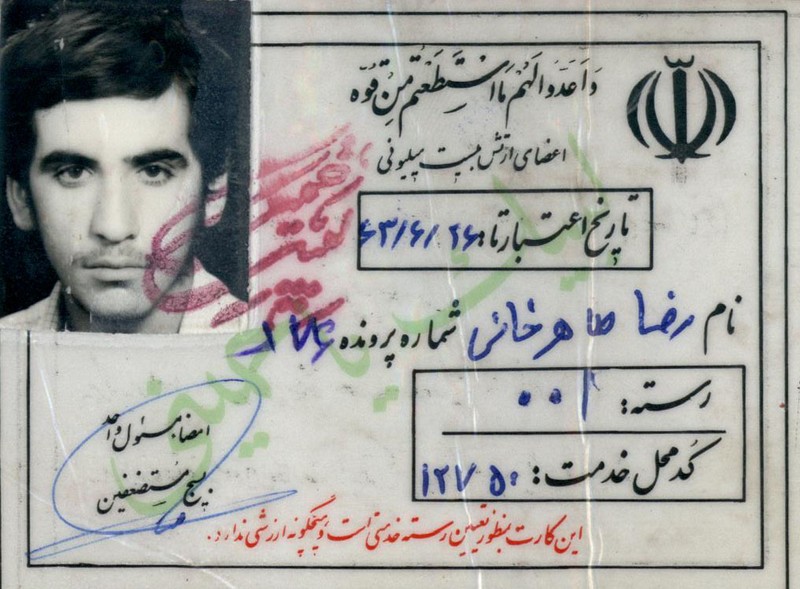 وَاَعِدّوا لَهُم مَا اسْتَطَعْتُم مِن قُوّه
اعضای ارتش بیست میلیونی
تاریخ اعتبار تا: ۶۳/۶/۲۶
نام رضا طاهرخانی شماره پرونده ۱۷۶
رسته: ۰۰۱
کد محل خدمت: ۱۲۷۵۰
امضاء مسئول واحد
بسیج مستضعفین
این کارت بمنظور تعیین رسته خدمتی است و هیچگونه ارزشی ندارد.